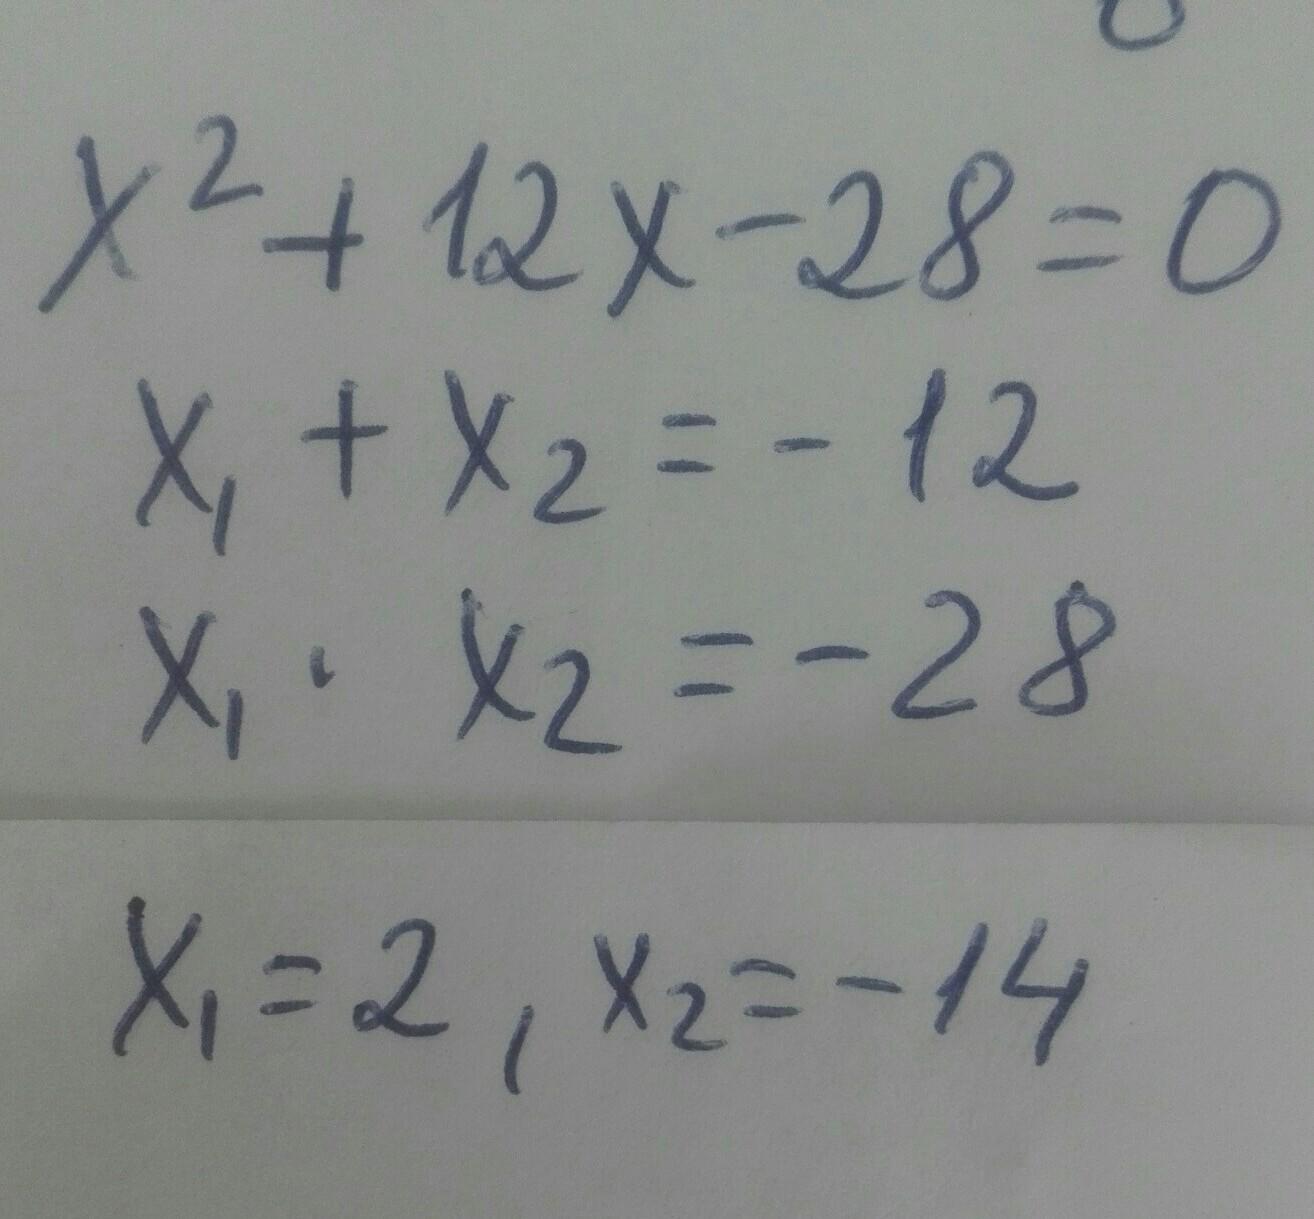 x² + 12x - 28 = 0
x₁ + x₂ = - 12
x₁ · x₂ = - 28
x₁ = 2, x₂ = - 14